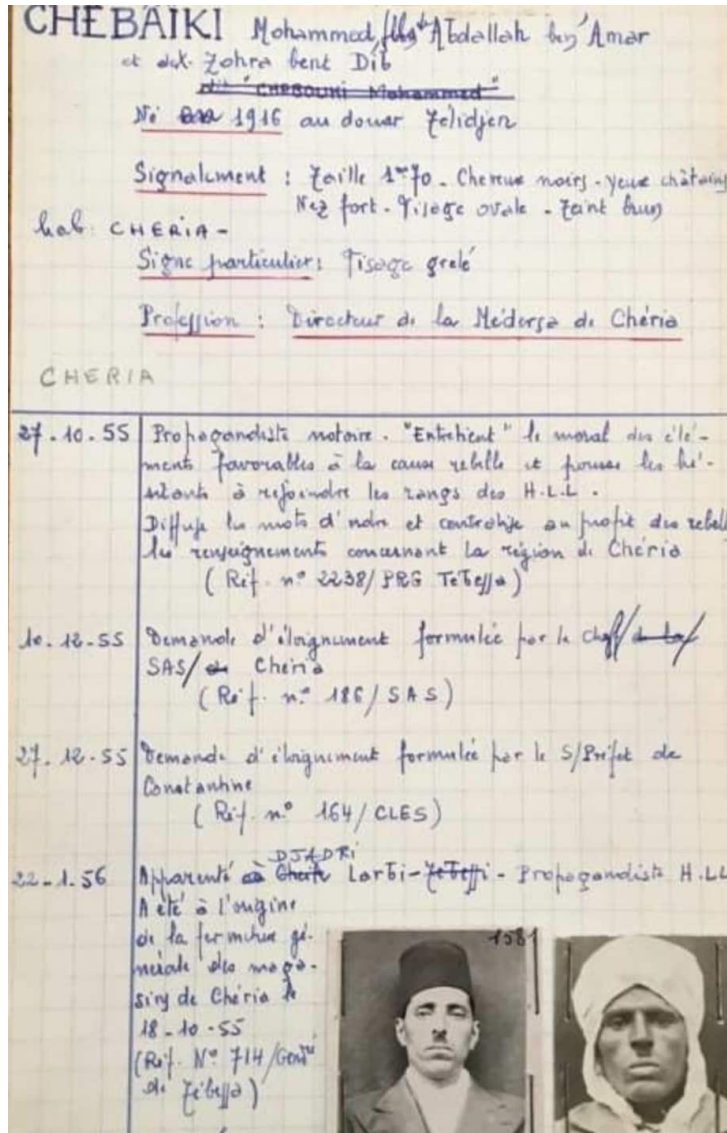 CHEBAIKI Mohammed fils de Abdallah ben Amar
et de Zohra bent Dib
dit "CHEBOUKI Mohammed"
Né 1916 au douar Telidjen
Signalement : Taille 1m70 - Cheveux noirs - yeux châtains
Nez fort - Visage ovale - Teint brun
hab: CHERIA -
Signe particulier : Visage grelé
Profession : Directeur de la Médersa de Chéria
CHERIA
27-10-55 Propagandiste notoire. "Entretient" le moral des élé-
ments favorables à la cause rebelle et pousse les hé-
sitants à rejoindre les rangs des H.L.L.
Diffuse les mots d'ordre et centralise au profit des rebell
les renseignements concernant la région de Chéria
(Réf. n° 2238/PRG Tébessa)
10.12.55 Demande d'éloignement formulée par le Chef/de la/
SAS/de Chéria
(Réf. n° 186/SAS)
27.12.55 Demande d'éloignement formulée par le S/Préfet de
Constantine
(Réf. n° 164/CLES)
DJADRI
22-1.56 Apparenté à Cheikh Larbi-Tebessi - Propagandiste H.LL
A été à l'origine
de la fermeture gé-
nérale des maga-
sins de Chéria le
18-10-55
(Réf. N° 714/Gend
de Tébessa)
1581